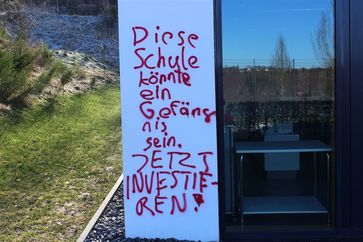 Diese
Schule
könnte
ein
Gefäng
nis
sein.
JETZT
INVESTIE-
REN!